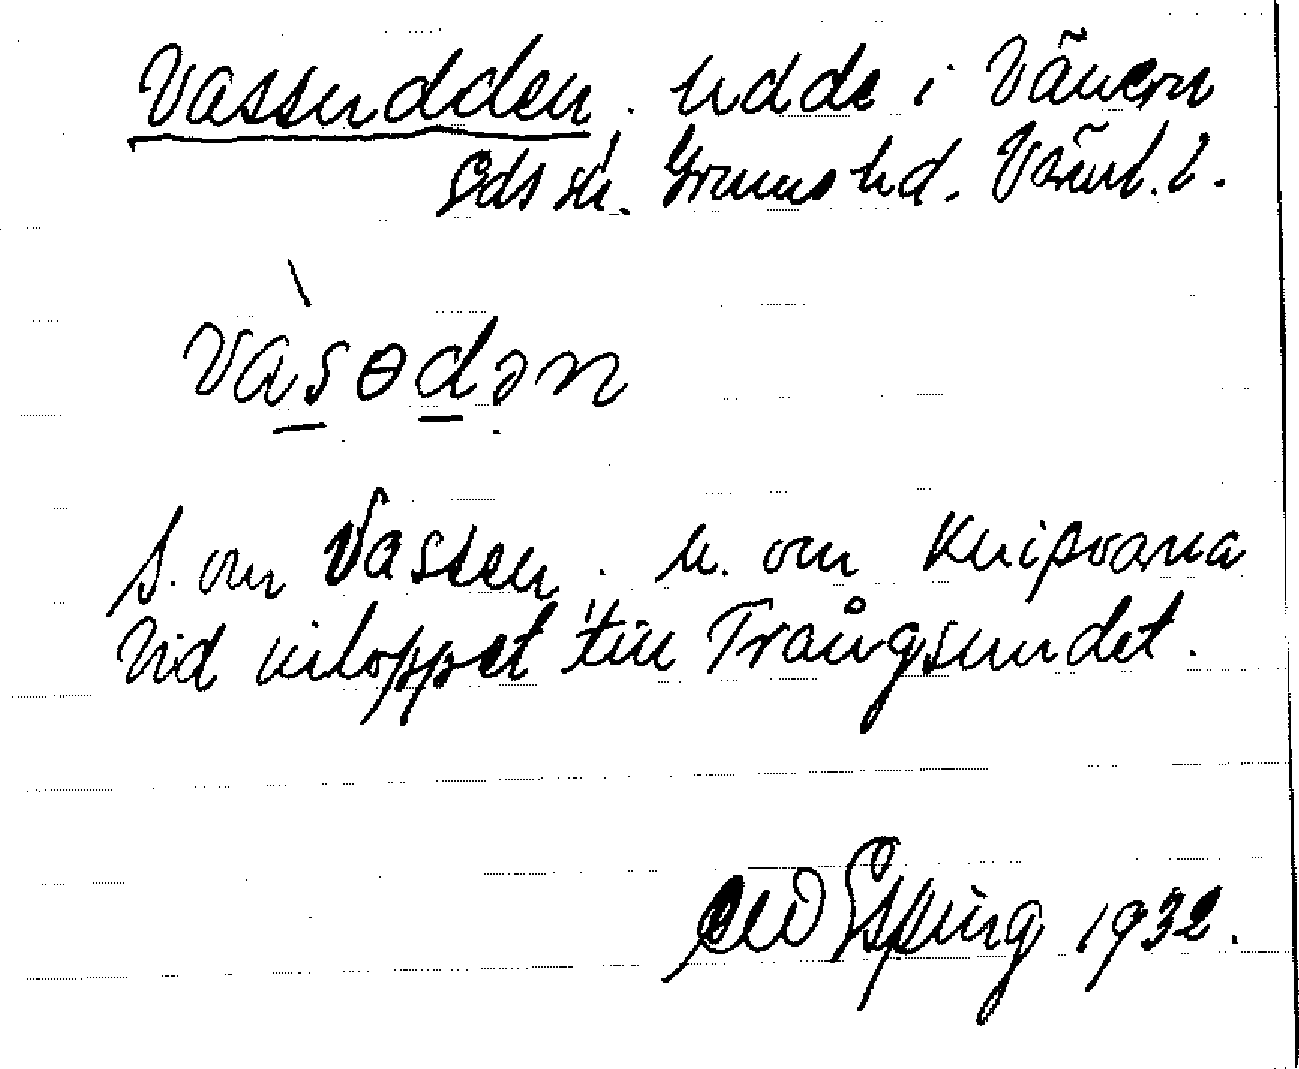 Vassudden. udde i Vänern
Eds sn. Grums hd. Värml. l.
vàsɵdən
S. om Vassen. n. om Knipoarna
Vid inloppet till Trångsundet.
Espling 1932.